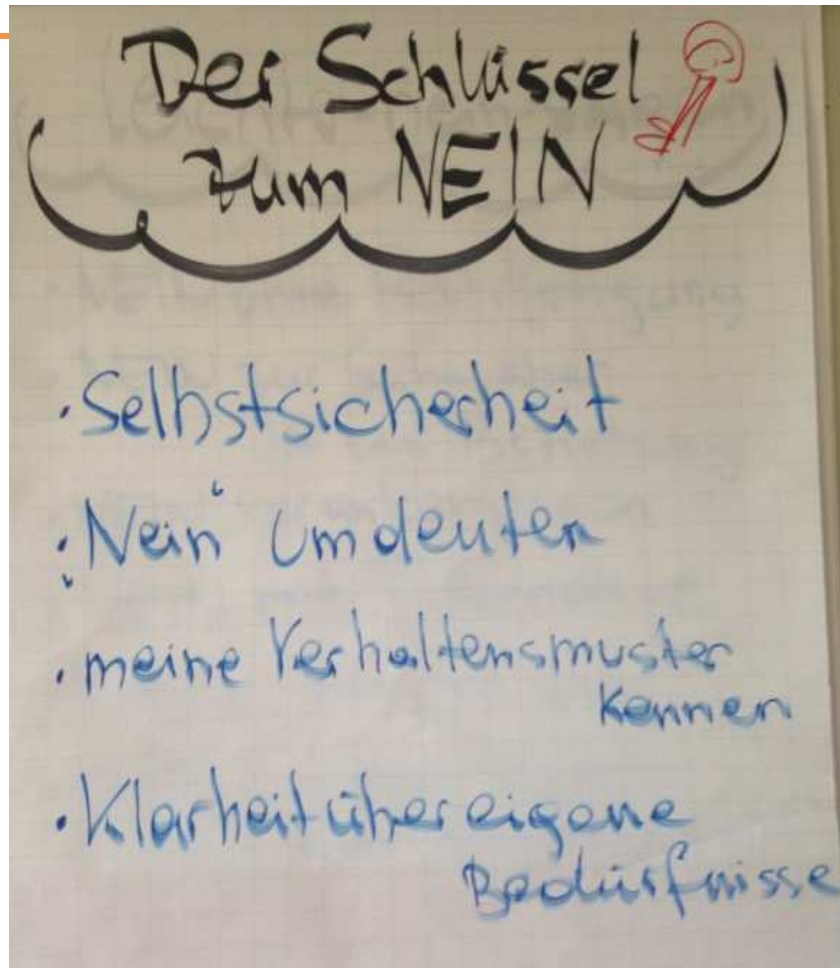 Der Schlüssel
zum NEIN
· Selbstsicherheit
· „Nein“ umdeuten
· meine Verhaltensmuster
kennen
· Klarheit über eigene
Bedürfnisse